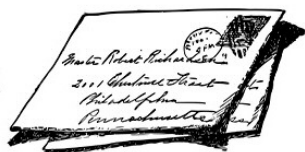 Master Robert Richardson
2001 Chestnut Street
Philadelphia